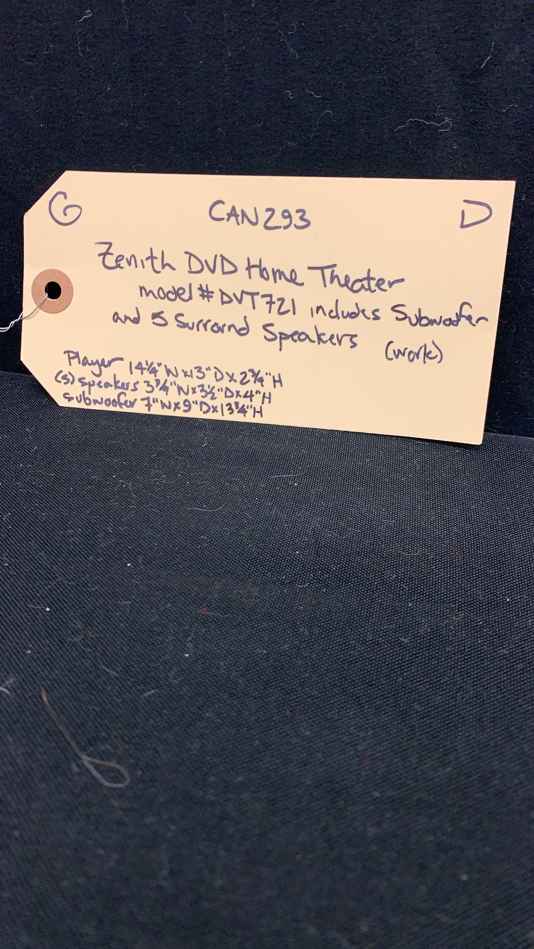 G CAN293 D
Zenith DVD Home Theater
model # DVT721 includes Subwoofer
and 5 Surrornd Speakers (work)
Player 14¼"W x 13"D x 2¾"H
(5) speakers 3¾"W x 3½"D x 4"H
subwoofer 7"W x 9"D x 13¾"H